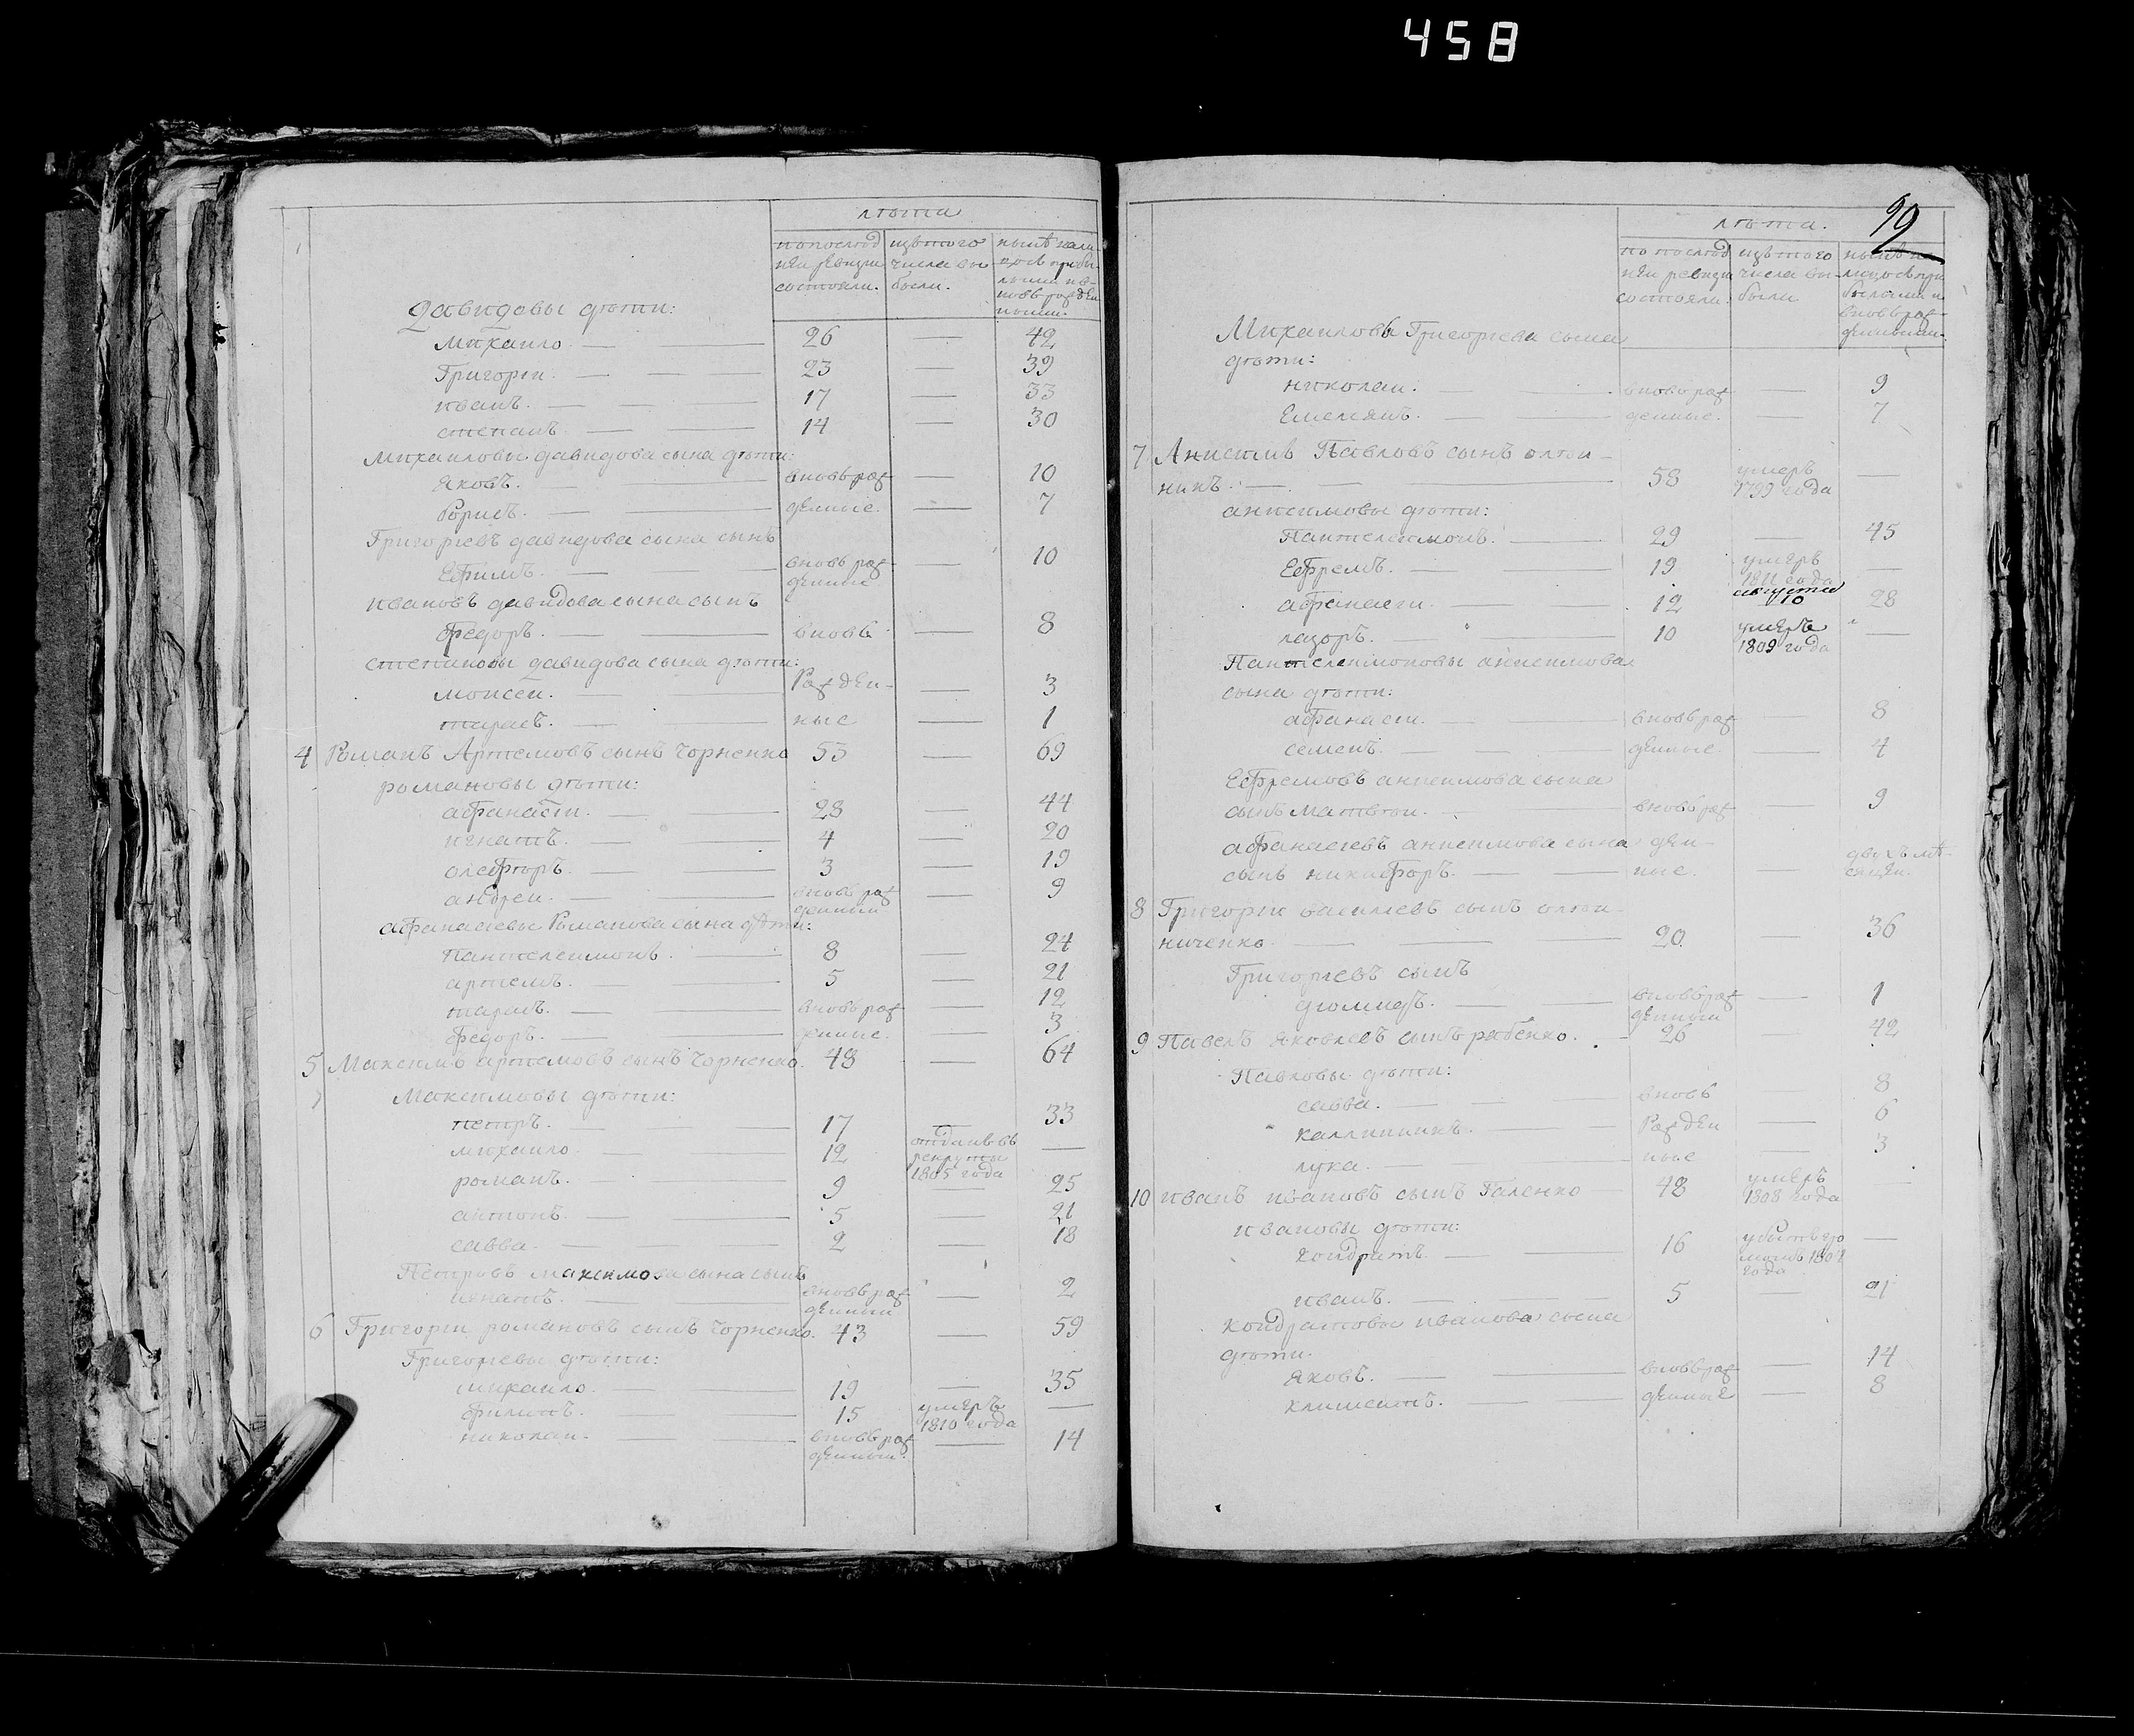 458
лѣта
попослѣд изътого нынѣ нали
ней ревизiи числа вы цосъ прибы
состояли. были. лыми и в
новь рожден
ными.
Давидовы дѣти:
михаило. — — 26 — 42
Григорiи. — — 23 — 39
иванъ. — — 17 — 33
степанъ. — — 14 — 30
михаиловы давидова сына дѣти:
яковъ. — вновь рож — 10
борисъ. — денные. — 7
Григорiевъ давидова сына сынъ
Ефимъ. — вновь рож — 10
денные
ивановъ давидова сына сынъ
федоръ. — — вновь — 8
степановы давидова сына дѣти:
моисеи. — Рожден- — 3
тарасъ. — ные — 1
4 Романъ Артемовъ сынъ Чорненко 53 — 69
романовы дѣти:
афанасiи. — — 28 — 44
игнатъ. — — 4 — 20
олефѣръ. — — 3 — 19
андреи. — — вновь рож — 9
денныи
афанасiевы Романова сына дѣти:
Пантелеимонъ. — 8 — 24
артемъ. — — 5 — 21
тарасъ. — — вновь рож — 12
федоръ. — — денные. — 3
5 Максимъ артемовъ сынъ Чорненко. 48 — 64
Максимовы дѣти:
петръ. — — 17 — 33
михаило — — 12 отданъ въ —
рекруты
1805 года
романъ. — — 9 — 25
антонъ. — — 5 — 21
савва. — — 2 — 18
Петровъ максимова сына сынъ
игнатъ. — вновь рож — 2
денныи
6 Григорiи романовъ сынъ Чорненко. 43 — 59
Григорiевы дѣти:
михаило. — — 19 — 35
филипъ. — — 15 умеръ —
1810 года
николаи. — — вновь рож — 14
денныи.
99
лѣта.
по послѣд изътого нынѣ на
ней ревизiи числа вы- лицо съ при
состояли. были былыми и
вновь рож-
денными.
Михаиловы Григорiева сына
дѣти:
николаи. — вновь рож — 9
Емелянъ. — денные. — 7
7 Анисимъ Павловъ сынъ олѣи-
никъ. — — 58 умеръ —
1799 года
анисимовы дѣти:
Пантелеимонъ. — 29 — 45
Ефремъ. — — 19 умеръ —
1811 года
августа
10
афанасiи. — 12 28
лазоръ. — — 10 умеръ —
1809 года
Пантелеимоновы анисимова
сына дѣти:
афанасiи. — вновь рож 8
семенъ. — — денные. — 4
Ефремовъ анисимова сына
сынъ матвѣи. — вновь рож 9
афанасiевъ анисимова сына ден-
сынъ никифоръ. — — ные. — двухъ мѣ-
сяцеи.
8 Григорiи василiевъ сынъ олѣи-
ниченко. — — 20. — 36
Григорiевъ сынъ
дiомидъ. — — вновь рож — 1
денныи
9 Павелъ яковлевъ сынъ рябенко. — 26 42
Павловы дѣти:
савва. — — вновь 8
каллиникъ. — Рожден — 6
лука. — ные — 3
10 иванъ ивановъ сынъ Галенко — 48 умеръ —
1808 года
ивановы дѣти:
кондратъ. — — 16 —
года
иванъ. — — 5 — 21
кондратовы иванова сына
дѣти.
яковъ. — — вновь рож — 14
климентъ. — — денные — 8